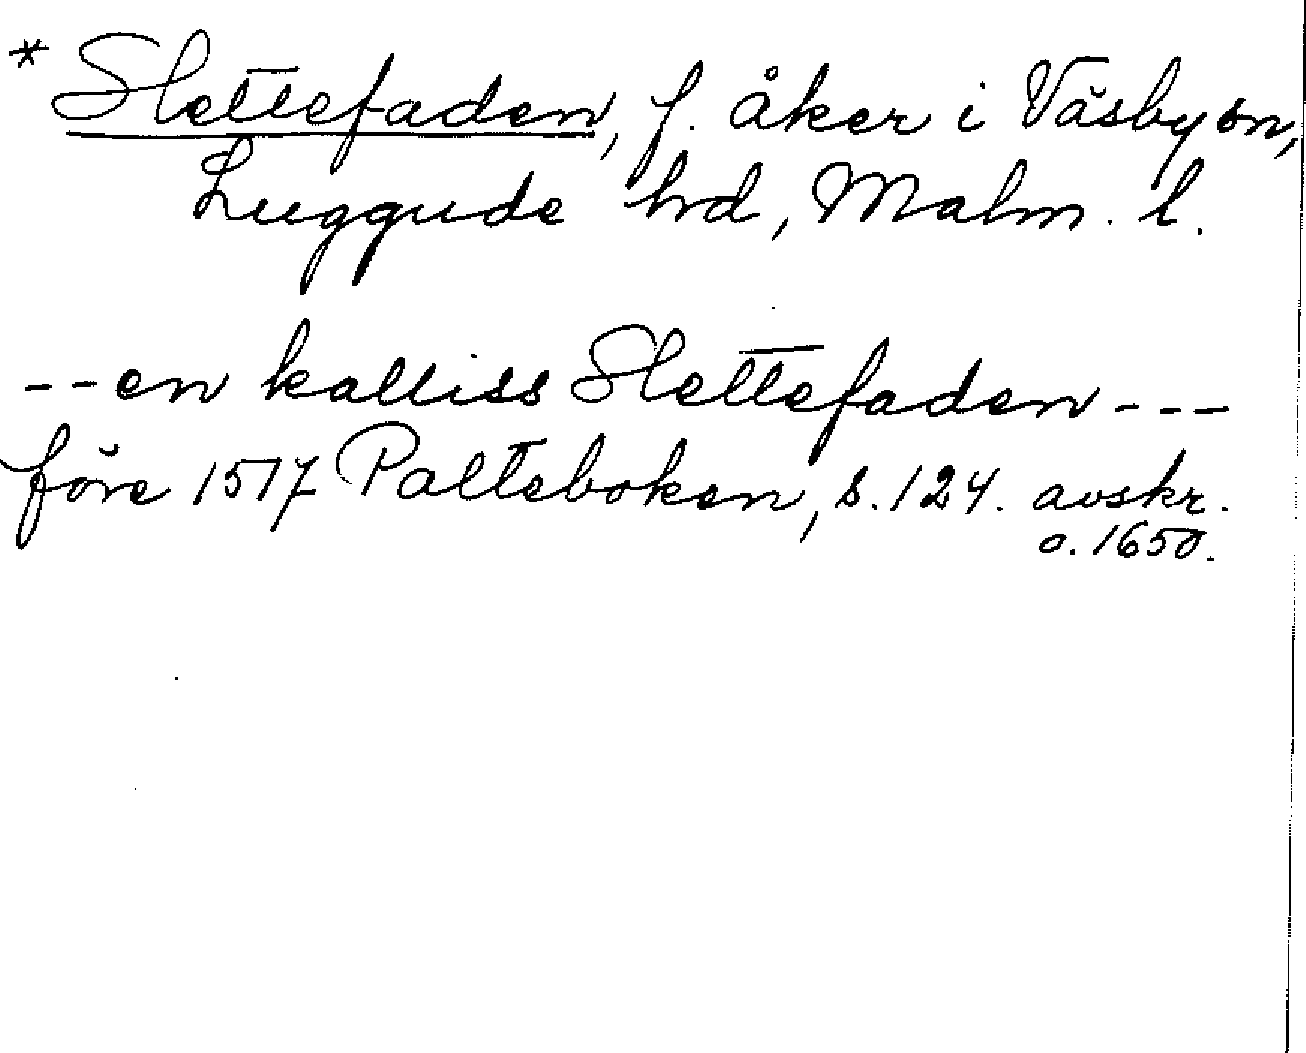 * Slettefaden, f. åker i Väsby sn,
Luggude hd, Malm. l.
--en kalliss Slettefaden---
före 1517 Palteboken, s. 124. avskr.
o. 1650.